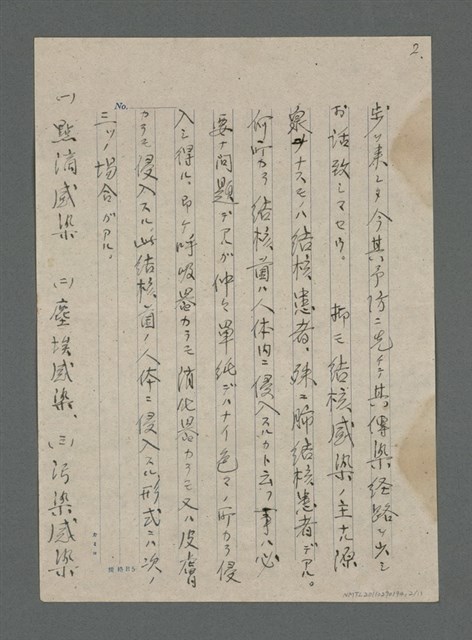 2.
出来マセウ 今其予防ニ先ケテ其傳染経路ヲ少シ
お話致シマセウ。 抑モ結核感染ノ主ナル源
泉ヲナスモノハ結核患者、殊ニ肺結核患者デアル。
何所カラ結核菌ハ人体内ニ侵入スルカト云フ事ハ必
要ナ問題デアルガ仲々單純デハナイ色々ノ所カラ侵
入シ得ル、即ケ呼吸器カラモ消化器カラモ又ハ皮膚
カラモ侵入スル、此結核菌ノ人体ニ侵入スル形式ニハ次ノ
三ツノ場合ガアル。
(一) 點滴感染 (二) 塵埃感染、(三) 汚染感染
No.
NMTL20110270190